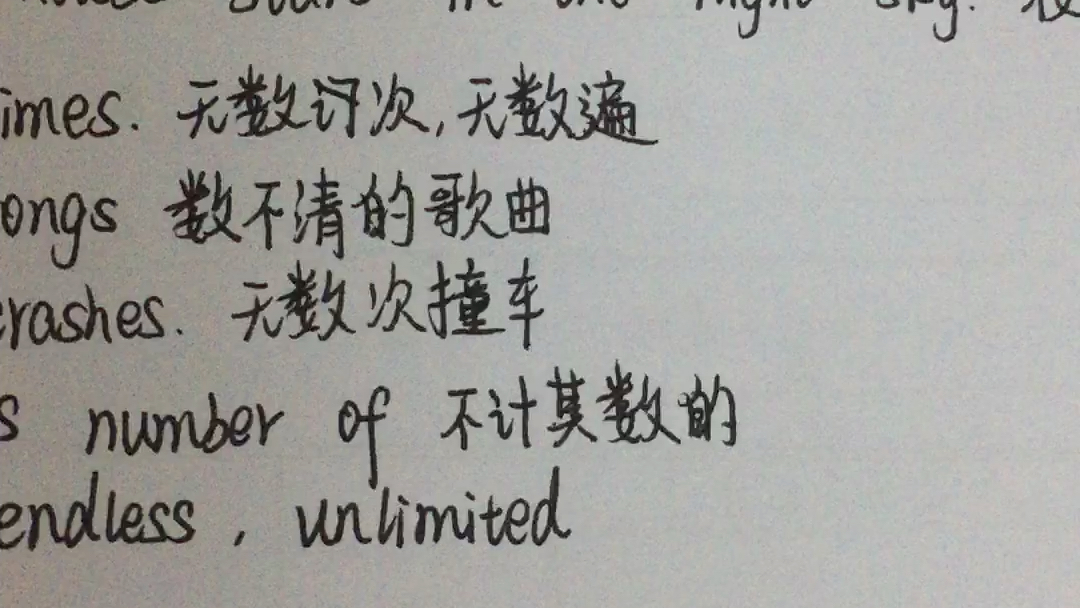 in the night sky.
imes. 无数许次,无数遍
ongs 数不清的歌曲
rashes. 无数次撞车
s number of 不计其数的
endless, unlimited